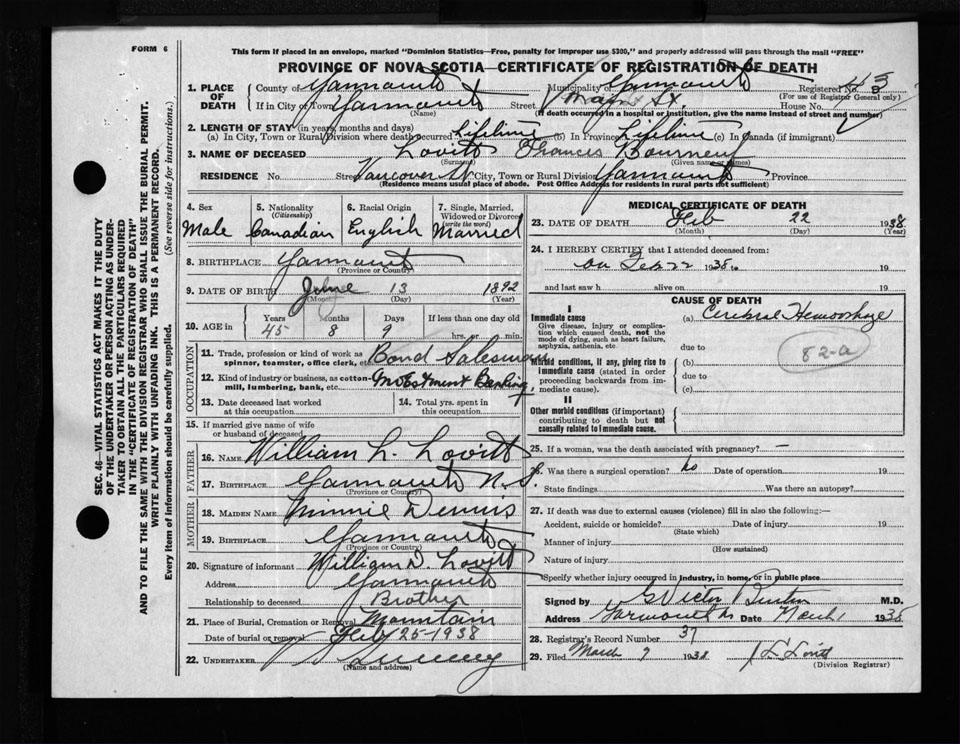 FORM 6
This form if placed in an envelope, marked "Dominion Statistics—Free, penalty for improper use $300," and properly addressed will pass through the mail "FREE"
PROVINCE OF NOVA SCOTIA—CERTIFICATE OF REGISTRATION OF DEATH
1. PLACE OF DEATH
County of Yarmouth Municipality of Yarmouth Registered No.
(For use of Registrar General only)
If in City or Town Yarmouth Street Main St. House No.
(Name) (If death occurred in a hospital or institution, give the name instead of street and number)
2. LENGTH OF STAY (in years, months and days)
(a) In City, Town or Rural Division where death occurred Lifetime (b) In Province Lifetime (c) in Canada (if immigrant)
3. NAME OF DECEASED Lovitt Frances Bourneuf
(Surname) (Given name or names)
RESIDENCE No. Street Vancouver St City, Town or Rural Division Yarmouth Province
(Residence means usual place of abode. Post Office Address for residents in rural parts not sufficient)
4. Sex Male
5. Nationality (Citizenship) Canadian
6. Racial Origin English
7. Single, Married, Widowed or Divorced (write the word) Married
8. BIRTHPLACE Yarmouth
(Province or Country)
9. DATE OF BIRTH June 13 1892
(Month) (Day) (Year)
10. AGE in Years Months Days If less than one day old
45 8 9 hrs. or min.
OCCUPATION
11. Trade, profession or kind of work as spinner, teamster, office clerk, etc. Bond Salesman
12. Kind of industry or business, as cotton-mill, lumbering, bank, etc. Investment Banking
13. Date deceased last worked at this occupation
14. Total yrs. spent in this occupation
15. If married give name of wife or husband of deceased
FATHER
16. NAME William L. Lovitt
17. BIRTHPLACE Yarmouth N.S.
(Province or Country)
MOTHER
18. MAIDEN NAME Minnie Dennis
19. BIRTHPLACE Yarmouth
(Province or Country)
20. Signature of informant William D. Lovitt
Address Yarmouth
Relationship to deceased Brother
21. Place of Burial, Cremation or Removal Mountain
Date of burial or removal Feb 25-1938
22. UNDERTAKER
(Name and address)
MEDICAL CERTIFICATE OF DEATH
23. DATE OF DEATH Feb 22 1938
(Month) (Day) (Year)
24. I HEREBY CERTIFY that I attended deceased from:
on Feb 22 1938 19
and last saw h alive on 19
CAUSE OF DEATH
I
Immediate cause (a) Cerebral Hemorrhage
Give disease, injury or complication which caused death, not the mode of dying, such as heart failure, asphyxia, asthenia, etc.
due to
82-a
Morbid conditions, if any, giving rise to immediate cause (stated in order proceeding backwards from immediate cause).
(b)
due to
(c)
II
Other morbid conditions (if important) contributing to death but not causally related to immediate cause.
25. If a woman, was the death associated with pregnancy? —
26. Was there a surgical operation? no Date of operation 19
State findings Was there an autopsy?
27. If death was due to external causes (violence) fill in also the following:—
Accident, suicide or homicide? Date of injury 19
(State which)
Manner of injury
(How sustained)
Nature of injury
Specify whether injury occurred in industry, in home, or in public place
Signed by G Victor Burton M.D.
Address Yarmouth NS Date March 1 1938
28. Registrar's Record Number 37
29. Filed March 9 1938
(Division Registrar)
SEC. 46—VITAL STATISTICS ACT MAKES IT THE DUTY
OF THE UNDERTAKER OR PERSON ACTING AS UNDER-
TAKER TO OBTAIN ALL THE PARTICULARS REQUIRED
IN THE "CERTIFICATE OF REGISTRATION OF DEATH"
AND TO FILE THE SAME WITH THE DIVISION REGISTRAR WHO SHALL ISSUE THE BURIAL PERMIT.
WRITE PLAINLY WITH UNFADING INK. THIS IS A PERMANENT RECORD.
Every item of information should be carefully supplied. (See reverse side for instructions.)